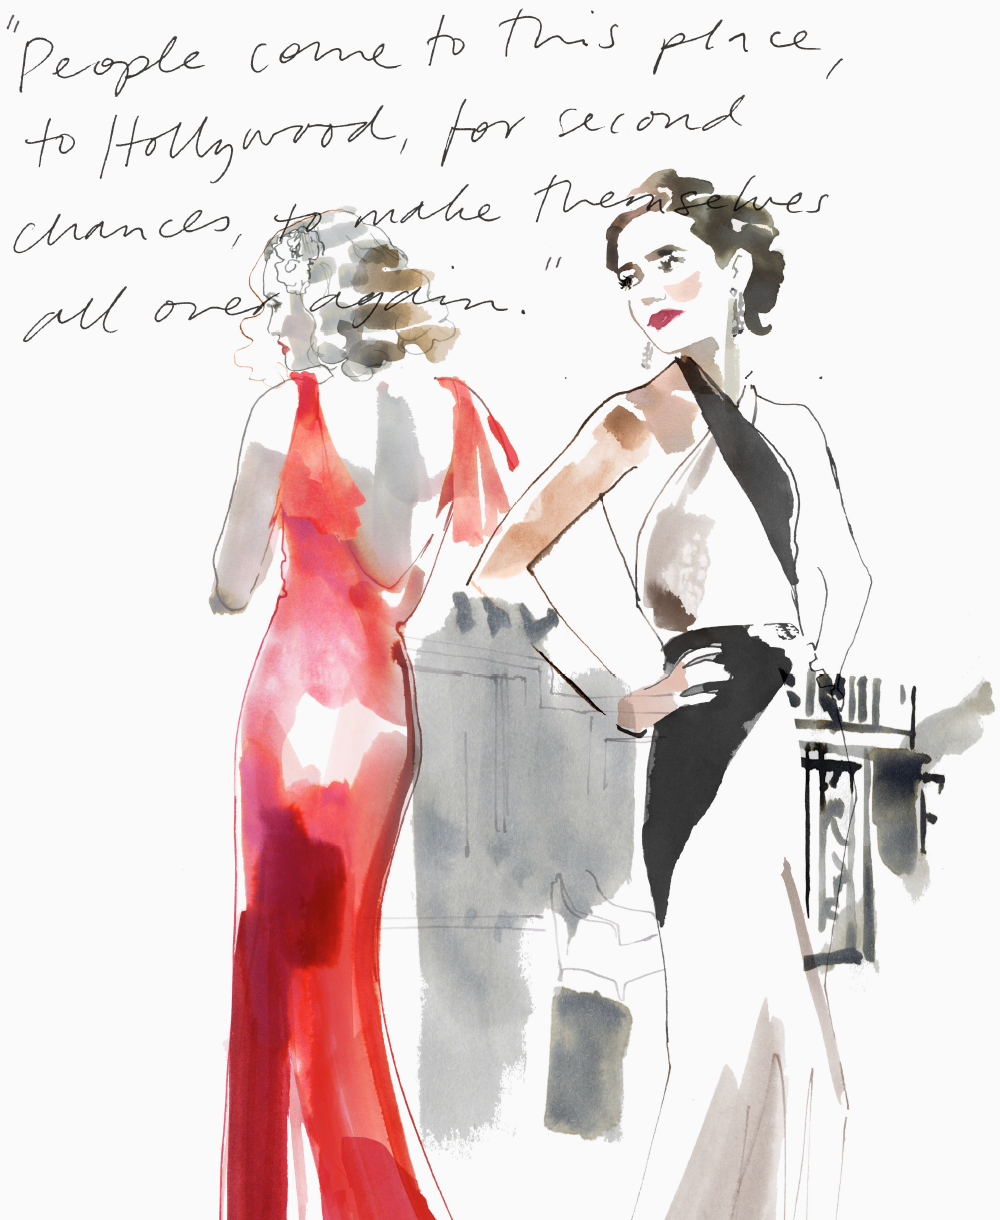 "People come to this place,
to Hollywood, for second
chances, to make themselves
all over again."